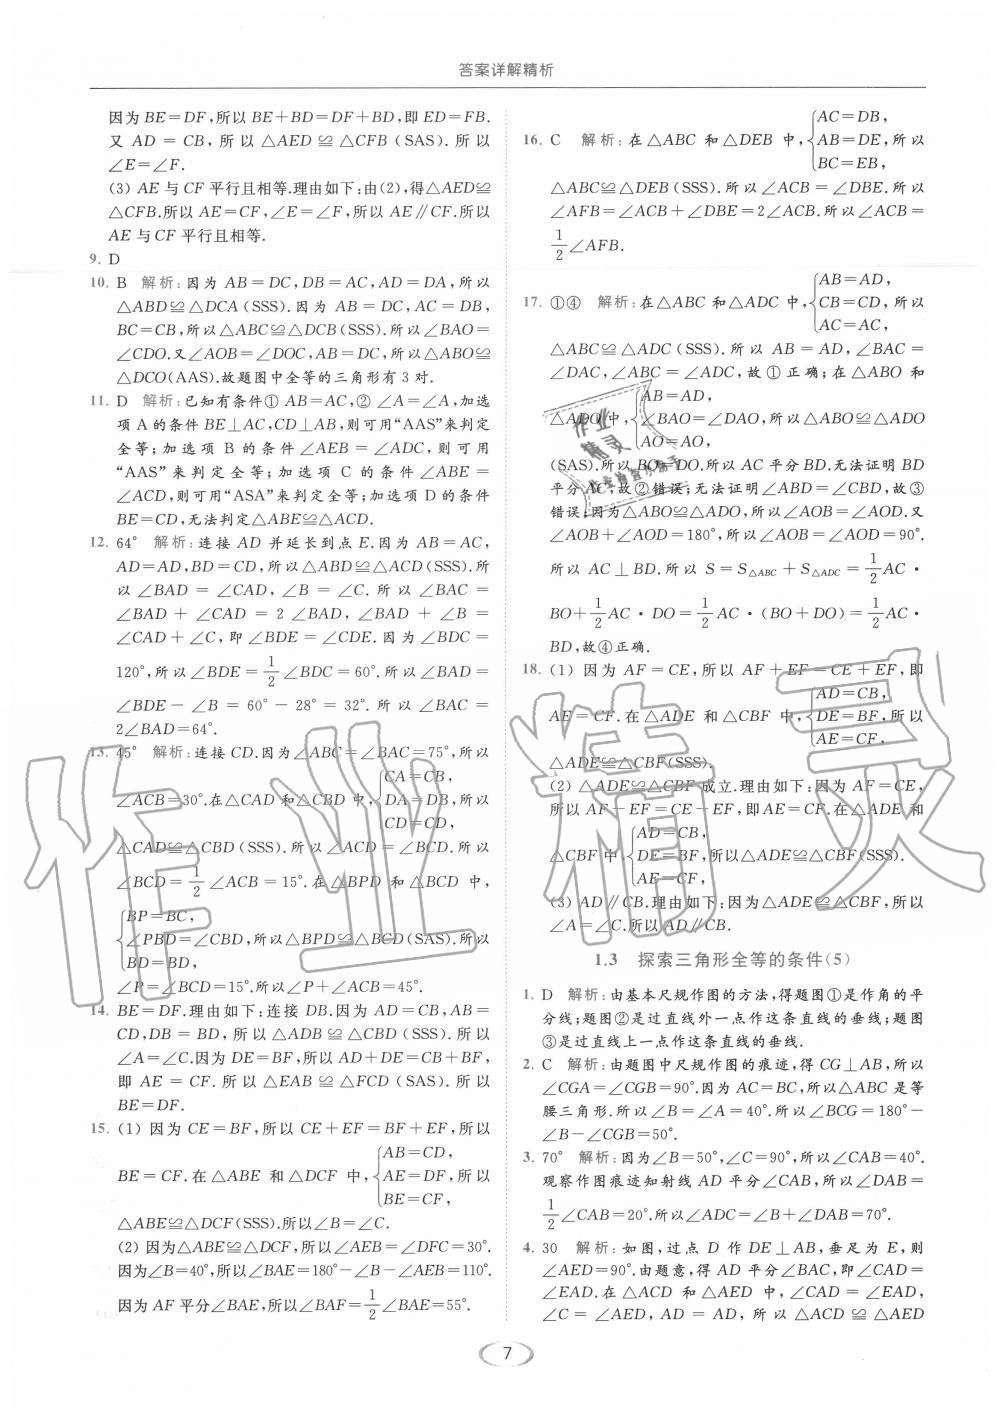 答案详解精析
因为 BE=DF,所以 BE+BD=DF+BD,即 ED=FB.
又 AD=CB,所以 △AED≌△CFB(SAS).所以
∠E=∠F.
(3) AE 与 CF 平行且相等.理由如下:由(2),得△AED≌
△CFB.所以 AE=CF,∠E=∠F,所以 AE∥CF.所以
AE 与 CF 平行且相等.
9. D
10. B 解析:因为 AB=DC,DB=AC,AD=DA,所以
△ABD≌△DCA(SSS).因为 AB=DC,AC=DB,
BC=CB,所以△ABC≌△DCB(SSS).所以∠BAO=
∠CDO.又∠AOB=∠DOC,AB=DC,所以△ABO≌
△DCO(AAS).故题图中全等的三角形有 3 对.
11. D 解析:已知有条件① AB=AC,② ∠A=∠A,加选
项 A 的条件 BE⊥AC,CD⊥AB,则可用“AAS”来判定
全等;加选项 B 的条件∠AEB=∠ADC,则可用
“AAS”来判定全等;加选项 C 的条件∠ABE=
∠ACD,则可用“ASA”来判定全等;加选项 D 的条件
BE=CD,无法判定△ABE≌△ACD.
12. 64° 解析:连接 AD 并延长到点 E.因为 AB=AC,
AD=AD,BD=CD,所以△ABD≌△ACD(SSS).所
以∠BAD=∠CAD,∠B=∠C.所以∠BAC=
∠BAD+∠CAD=2∠BAD,∠BAD+∠B=
∠CAD+∠C,即∠BDE=∠CDE.因为∠BDC=
120°,所以∠BDE=1/2∠BDC=60°.所以∠BAD=
∠BDE-∠B=60°-28°=32°.所以∠BAC=
2∠BAD=64°.
13. 45° 解析:连接 CD.因为∠ABC=∠BAC=75°,所以
∠ACB=30°.在△CAD 和△CBD 中,{CA=CB, DA=DB, CD=CD,所以
△CAD≌△CBD(SSS).所以∠ACD=∠BCD.所以
∠BCD=1/2∠ACB=15°.在△BPD 和△BCD 中,
{BP=BC,
∠PBD=∠CBD,所以△BPD≌△BCD(SAS).所以
BD=BD,
∠P=∠BCD=15°.所以∠P+∠ACB=45°.
14. BE=DF.理由如下:连接 DB.因为 AD=CB,AB=
CD,DB=BD,所以△ADB≌△CBD(SSS).所以
∠A=∠C.因为 DE=BF,所以 AD+DE=CB+BF,
即 AE=CF.所以△EAB≌△FCD(SAS).所以
BE=DF.
15. (1) 因为 CE=BF,所以 CE+EF=BF+EF,所以
BE=CF.在△ABE 和△DCF 中,{AB=CD, AE=DF, BE=CF,所以
△ABE≌△DCF(SSS).所以∠B=∠C.
(2) 因为△ABE≌△DCF,所以∠AEB=∠DFC=30°.
因为∠B=40°,所以∠BAE=180°-∠B-∠AEB=110°.
因为 AF 平分∠BAE,所以∠BAF=1/2∠BAE=55°.
16. C 解析:在△ABC 和△DEB 中,{AC=DB, AB=DE, BC=EB,所以
△ABC≌△DEB(SSS).所以∠ACB=∠DBE.所以
∠AFB=∠ACB+∠DBE=2∠ACB.所以∠ACB=
1/2∠AFB.
17. ①④ 解析:在△ABC 和△ADC 中,{AB=AD, CB=CD, AC=AC,所以
△ABC≌△ADC(SSS).所以 AB=AD,∠BAC=
∠DAC,故①正确;在△ABO 和
△ADO 中,{AB=AD, ∠BAO=∠DAO, AO=AO,所以△ABO≌△ADO
(SAS).所以 BO=DO.所以 AC 平分 BD.无法证明 BD
平分 AC,故②错误;无法证明∠ABD=∠CBD,故③
错误;因为△ABO≌△ADO,所以∠AOB=∠AOD.又
∠AOB+∠AOD=180°,所以∠AOB=∠AOD=90°.
所以 AC⊥BD.所以 S=S△ABC+S△ADC=1/2AC·
BO+1/2AC·DO=1/2AC·(BO+DO)=1/2AC·
BD,故④正确.
18. (1) 因为 AF=CE,所以 AF+EF=CE+EF,即
AE=CF.在△ADE 和△CBF 中,{AD=CB, DE=BF, AE=CF,所以
△ADE≌△CBF(SSS).
(2) △ADE≌△CBF 成立.理由如下:因为 AF=CE,
所以 AF-EF=CE-EF,即 AE=CF.在△ADE 和
△CBF 中{AD=CB, DE=BF, AE=CF,所以△ADE≌△CBF(SSS).
(3) AD∥CB.理由如下:因为△ADE≌△CBF,所以
∠A=∠C.所以 AD∥CB.
1.3 探索三角形全等的条件(5)
1. D 解析:由基本尺规作图的方法,得题图①是作角的平
分线;题图②是过直线外一点作这条直线的垂线;题图
③是过直线上一点作这条直线的垂线.
2. C 解析:由题图中尺规作图的痕迹,得 CG⊥AB,所以
∠CGA=∠CGB=90°.因为 AC=BC,所以△ABC 是等
腰三角形.所以∠B=∠A=40°.所以∠BCG=180°-
∠B-∠CGB=50°.
3. 70° 解析:因为∠B=50°,∠C=90°,所以∠CAB=40°.
观察作图痕迹知射线 AD 平分∠CAB,所以∠DAB=
1/2∠CAB=20°.所以∠ADC=∠B+∠DAB=70°.
4. 30 解析:如图,过点 D 作 DE⊥AB,垂足为 E,则
∠AED=90°.由题意,得 AD 平分∠BAC,即∠CAD=
∠EAD.在△ACD 和△AED 中,∠CAD=∠EAD,
∠C=∠AED,AD=AD,所以△ACD≌△AED
7
作业精灵
作业
精灵